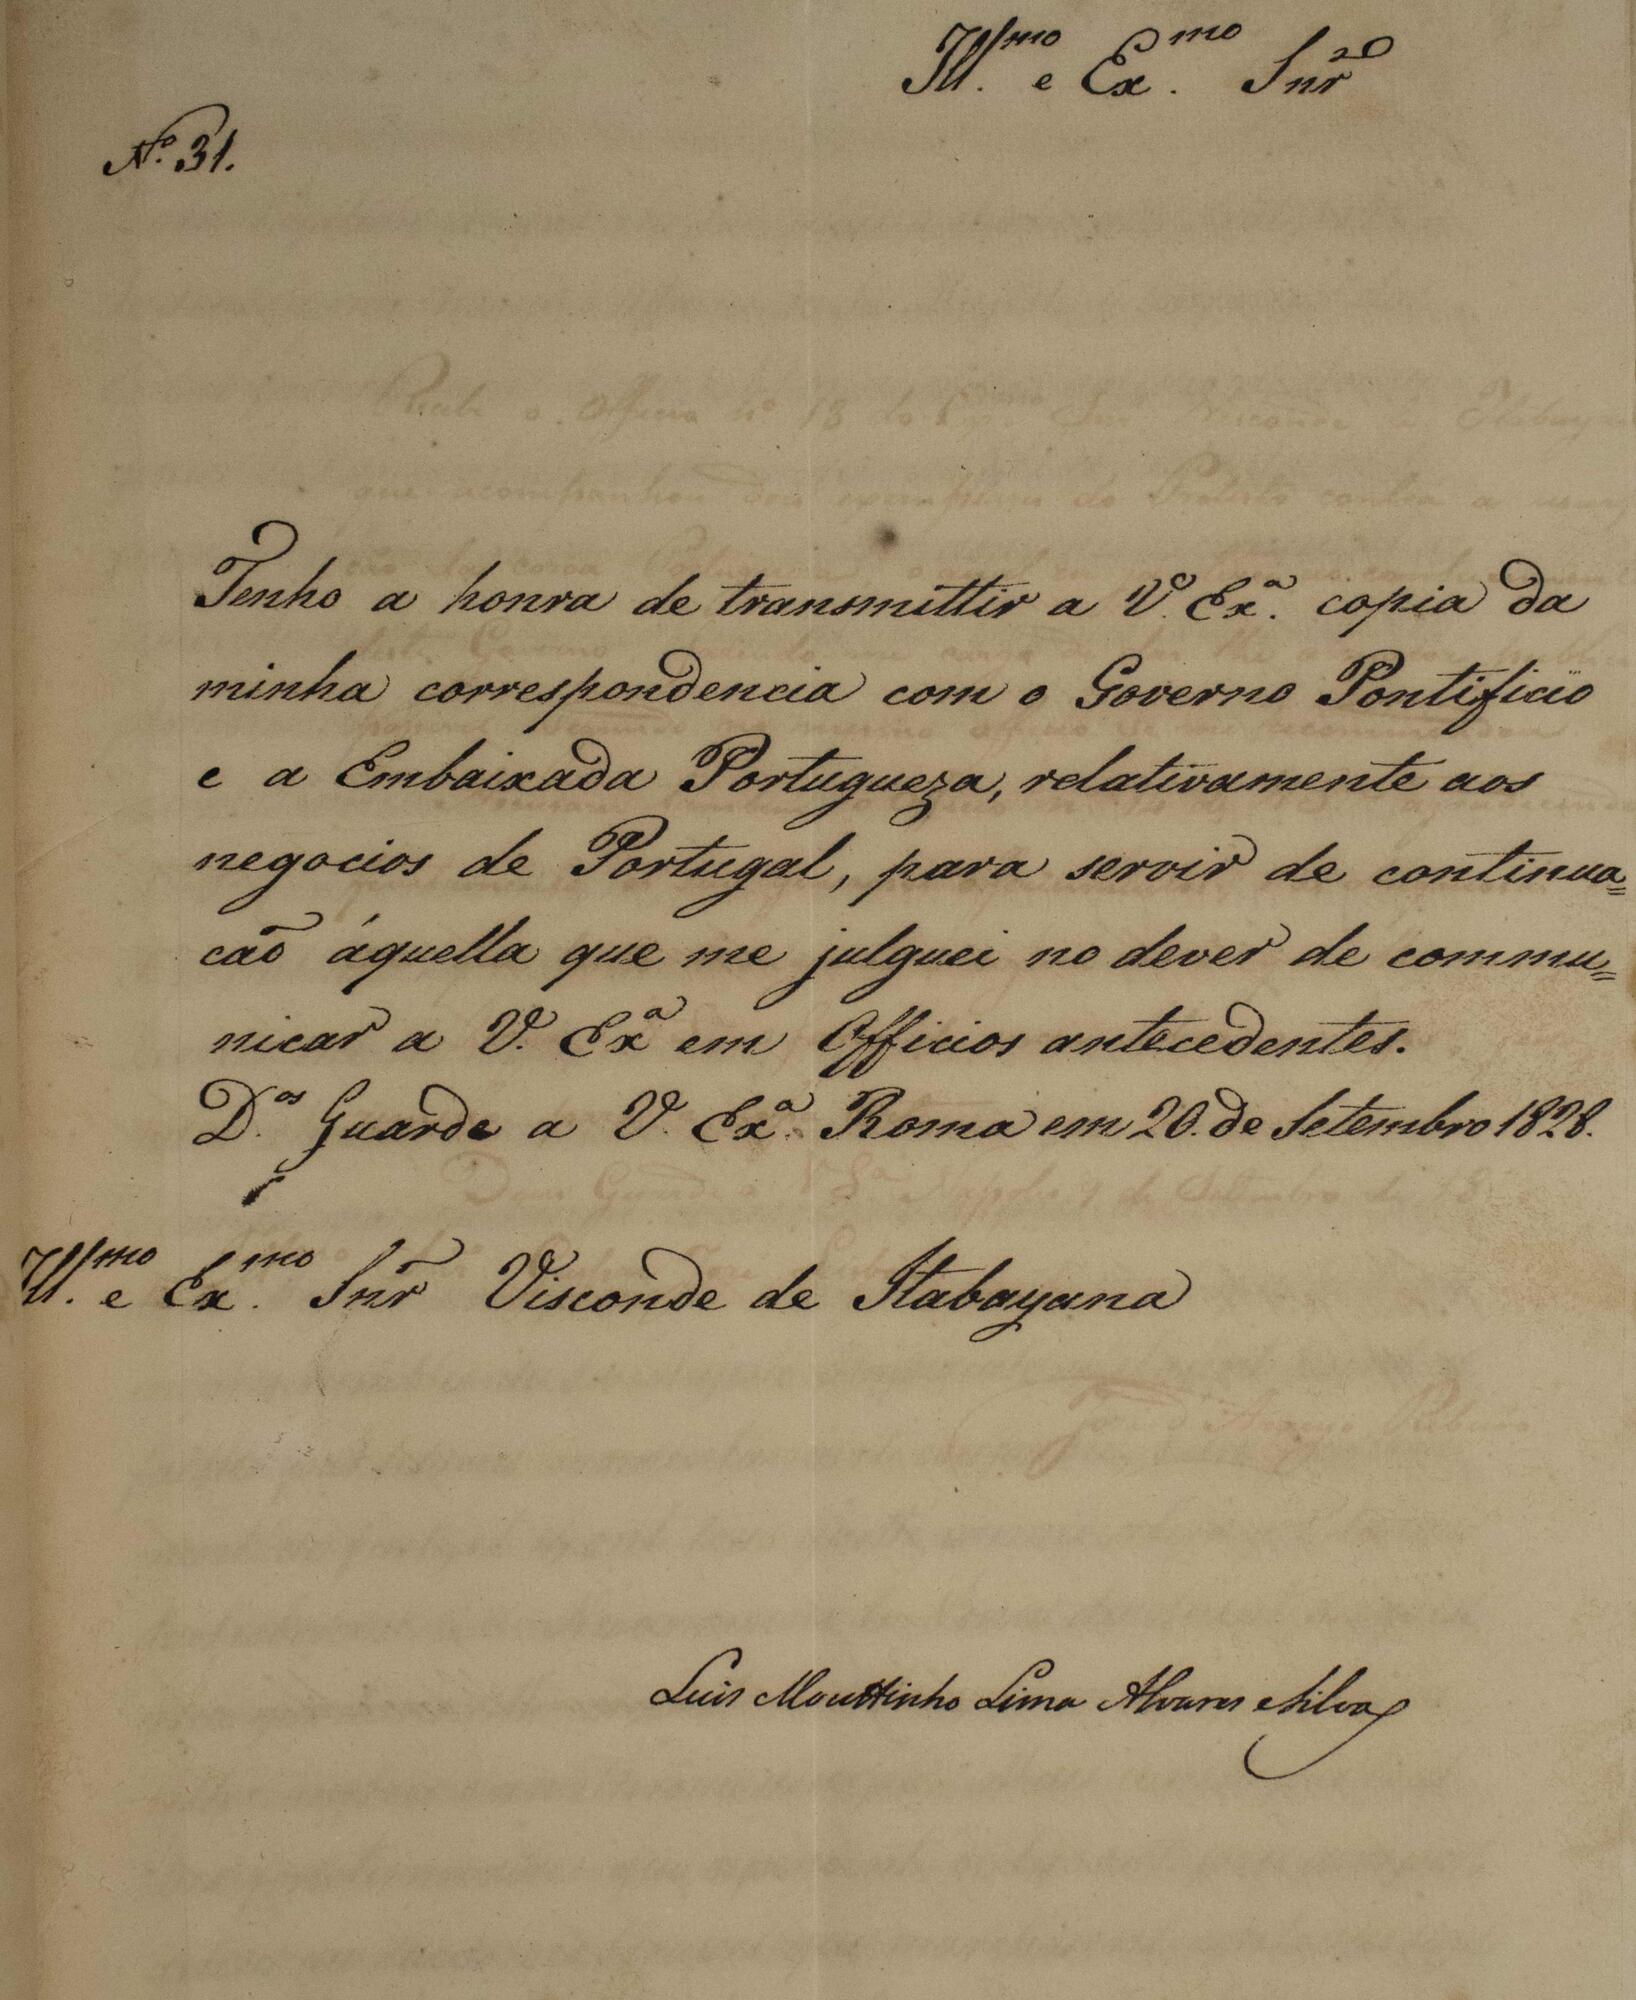 Ill.mo e Ex.mo Snr
Nº 31.
Tenho a honra de transmittir a V. Ex.ª copia da
minha correspondencia com o Governo Pontificio
e a Embaixada Portugueza, relativamente aos
negocios de Portugal, para servir de continua=
cão áquella que me julguei no dever de commu=
nicar a V. Exª em Officios antecedentes.
D.os Guarde a V. Exª. Roma em 20. de Setembro 1828.
Ill.mo e Ex.mo Snr Visconde de Itabayana
Luis Mouttinho Lima Alvares e Silva